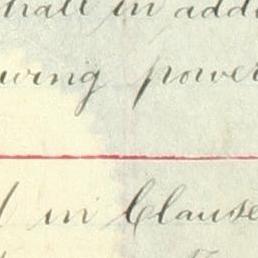 hall in addi
wing power
d in Clause